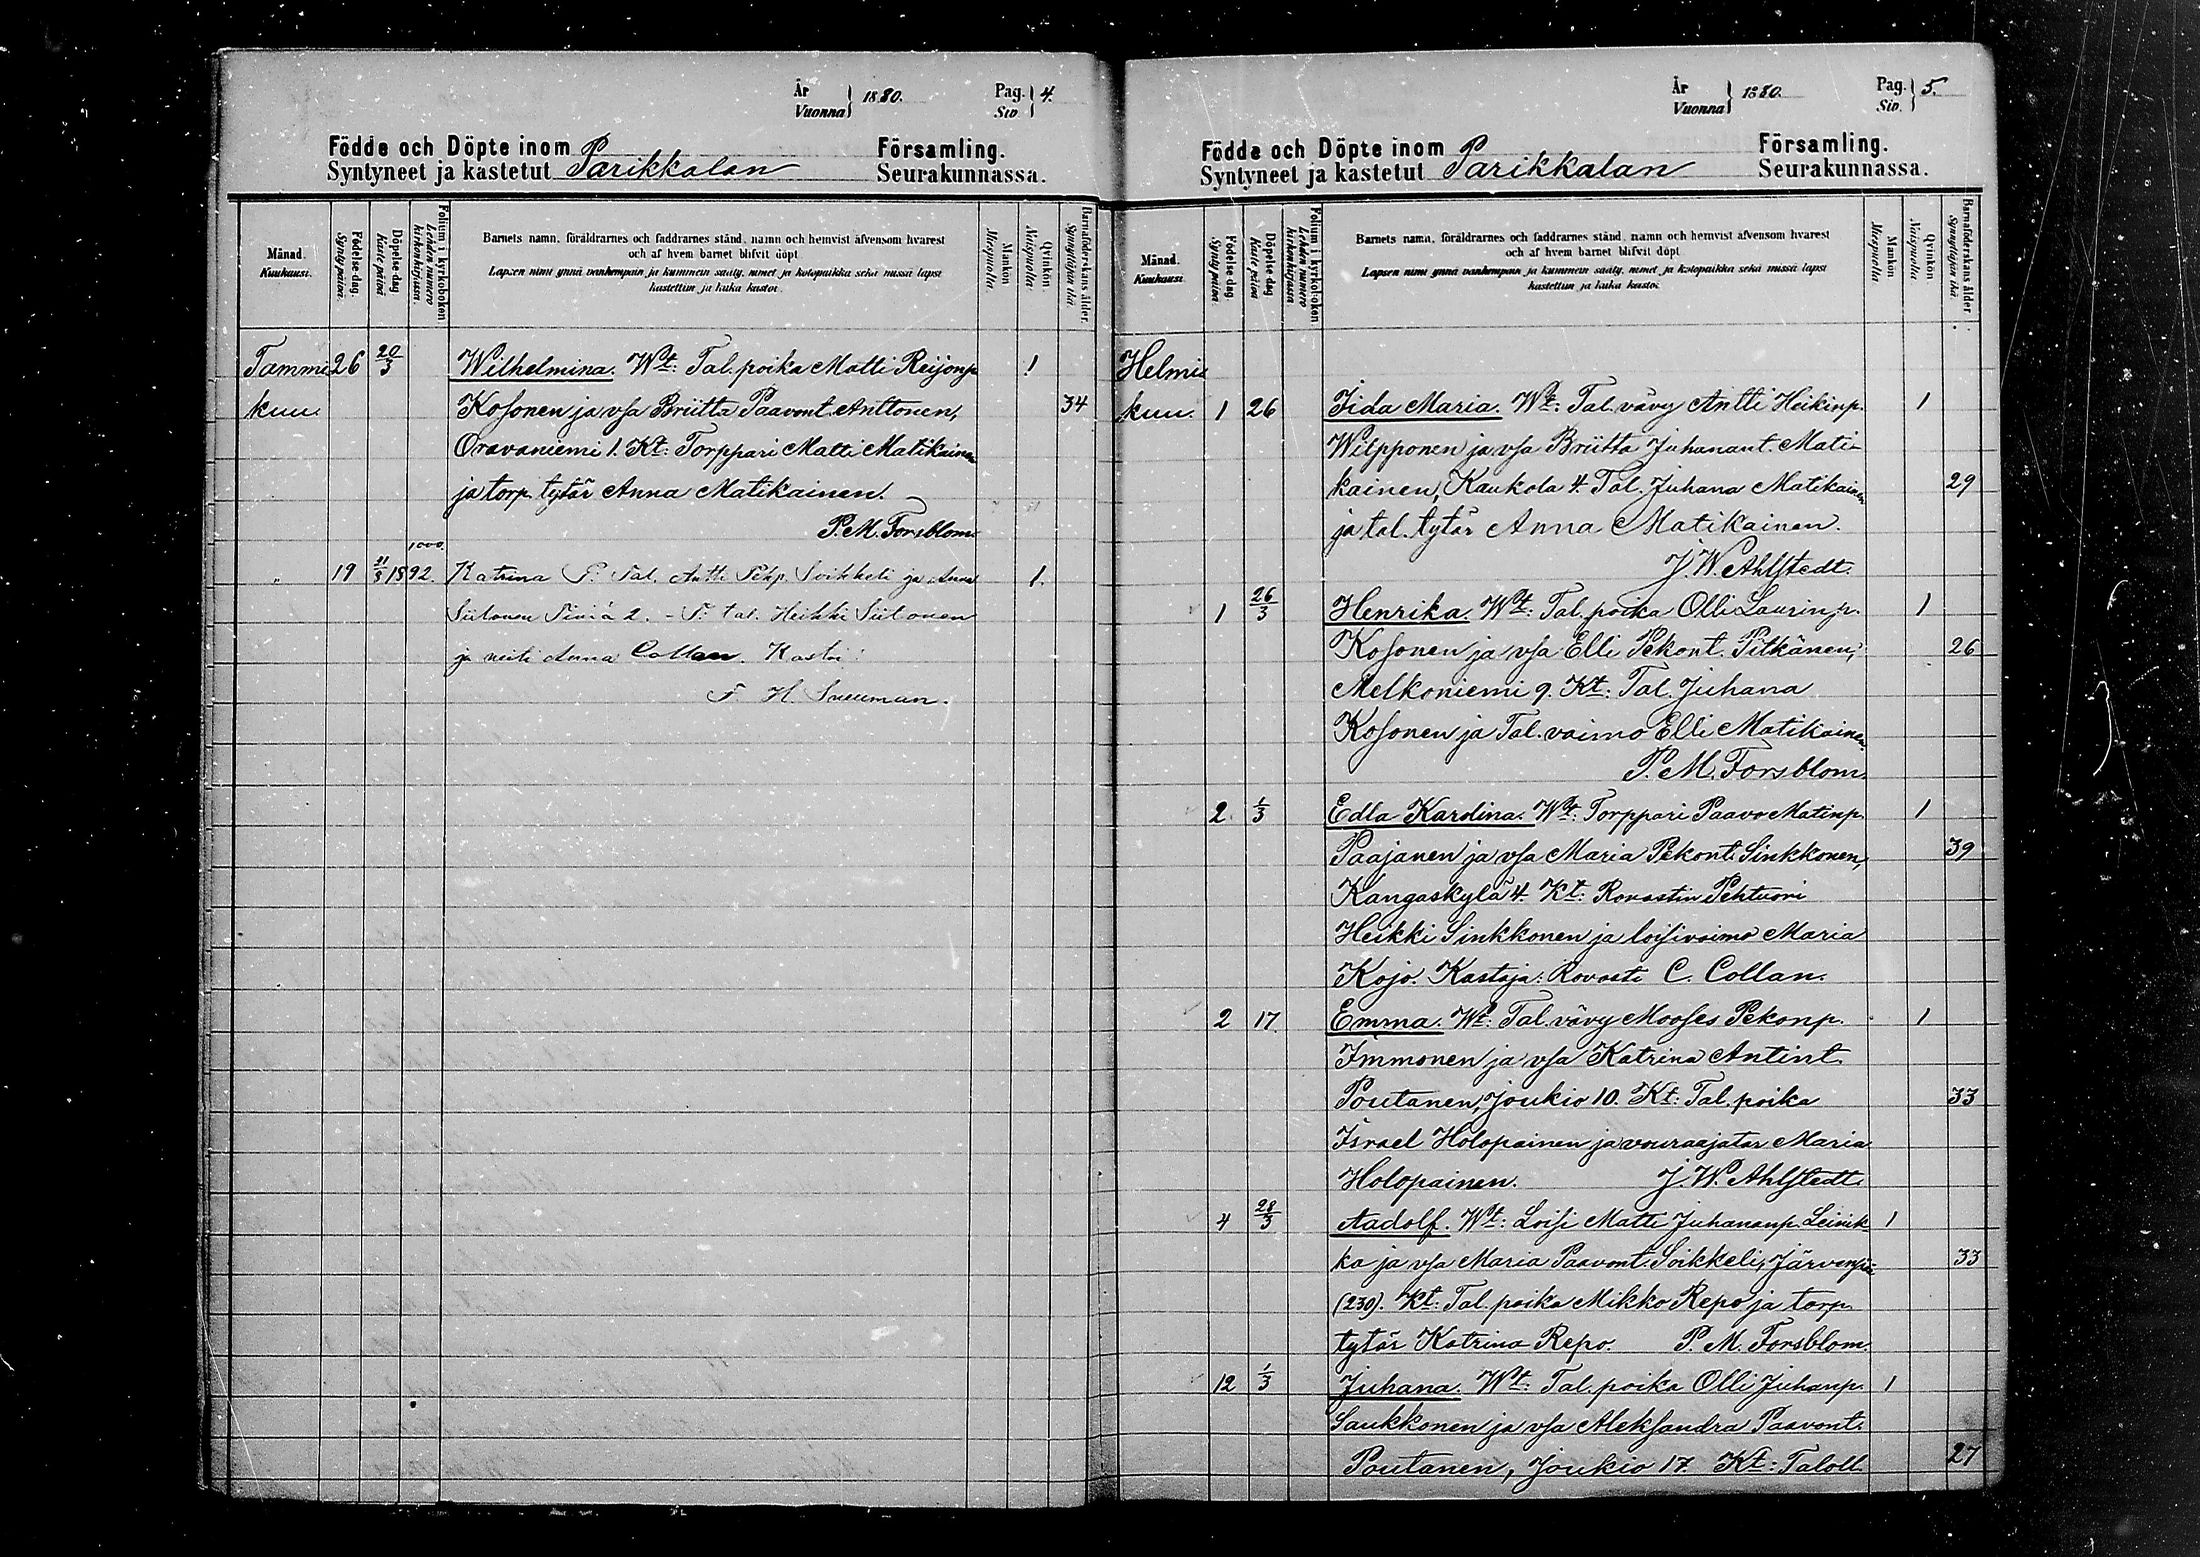 År
Vuonna } 1880.
Pag.
Siv. } 4.
Födde och Döpte inom Församling.
Syntyneet ja kastetut Parikkalan Seurakunnassa.
Månad. Kuukausi.
Födelse dag. Synty päivä.
Döpelse dag Kaste päivä
Folium i kyrkoboken Lehden numero kirkonkirjassa.
Barnets namn, föräldrarnes och faddrarnes stånd, namn och hemvist äfvensom hvarest
och af hvem barnet blifvit döpt.
Lapsen nimi ynnä vanhempain ja kummein sääty, nimet ja kotopaikka sekä missä lapsi
kastettiin ja kuka kastoi.
Mankön Miespuolta.
Qvinkön Naispuolta.
Barnaföderskans ålder. Synnyttäjän ikä.
Tammi 26 20/3 Wilhelmina. Wt: Tal. poika Matti Reijonp. 1
kuu. Kosonen ja vsa Briitta Paavont. Anttonen, 34
Oravaniemi 1. Kt: Torppari Matti Matikainen
ja torp. tytär Anna Matikainen.
P. M. Forsblom.
1000.
" 19 21/3 1892. Katrina T. Tal. Antti Pekp. Soikkeli ja Anna 1.
Siitonen 2. - T. tal. Heikki Siitonen
ja neiti Anna Collan. Kastoi:
F. H. Snellman.
År
Vuonna } 1880.
Pag.
Siv. } 5.
Födde och Döpte inom Församling.
Syntyneet ja kastetut Parikkalan Seurakunnassa.
Månad. Kuukausi.
Födelse dag. Synty päivä.
Döpelse dag Kaste päivä
Folium i kyrkoboken Lehden numero kirkonkirjassa.
Barnets namn, föräldrarnes och faddrarnes stånd, namn och hemvist äfvensom hvarest
och af hvem barnet blifvit döpt.
Lapsen nimi ynnä vanhempain ja kummein sääty, nimet ja kotopaikka sekä missä lapsi
kastettiin ja kuka kastoi.
Mankön Miespuolta.
Qvinkön Naispuolta.
Barnaföderskans ålder. Synnyttäjän ikä.
Helmi
kuu. 1 26 Iida Maria. Wt: Tal. vävy Antti Heikinp. 1
Wilpponen ja vsa Briitta Juhanant. Mati-
kainen, Kaukola 4. Tal. Juhana Matikainen 29
ja tal. tytär Anna Matikainen.
J. W. Ahlstedt.
1 26/3 Henrika. Wt: Tal. poika Olli Laurinp. 1
Kosonen ja vsa Elli Pekont. Pitkänen, 26
Melkoniemi 9. Kt: Tal. Juhana
Kosonen ja Tal. vaimo Elli Matikainen.
P. M. Forsblom.
2 1/3 Edla Karolina. Wt: Torppari Paavo Matinp. 1
Paajanen ja vsa Maria Pekont. Sinkkonen, 39
Kangaskylä 4. Kt: Rovastin Pehtuori
Heikki Sinkkonen ja loisivaimo Maria
Kojo. Kastaja: Rovasti C. Collan.
2 17 Emma. Wt: Tal. vävy Mooses Pekonp. 1
Immonen ja vsa Katrina Antint.
Poutanen, Joukio 10. Kt: Tal. poika 33
Israel Holopainen ja vouraajatar Maria
Holopainen. J. W. Ahlstedt.
4 28/3 Aadolf. Wt: Loisi Matti Juhananp. Leinik- 1
ka ja vsa Maria Paavont. Soikkeli, Järvenpää 33
(230). Kt: Tal. poika Mikko Repo ja torp.
tytär Katrina Repo. P. M. Forsblom.
12 1/3 Juhana. Wt: Tal. poika Olli Juhanp. 1
Saukkonen ja vsa Aleksandra Paavont.
Poutanen, Joukio 17. Kt: Taloll. 27